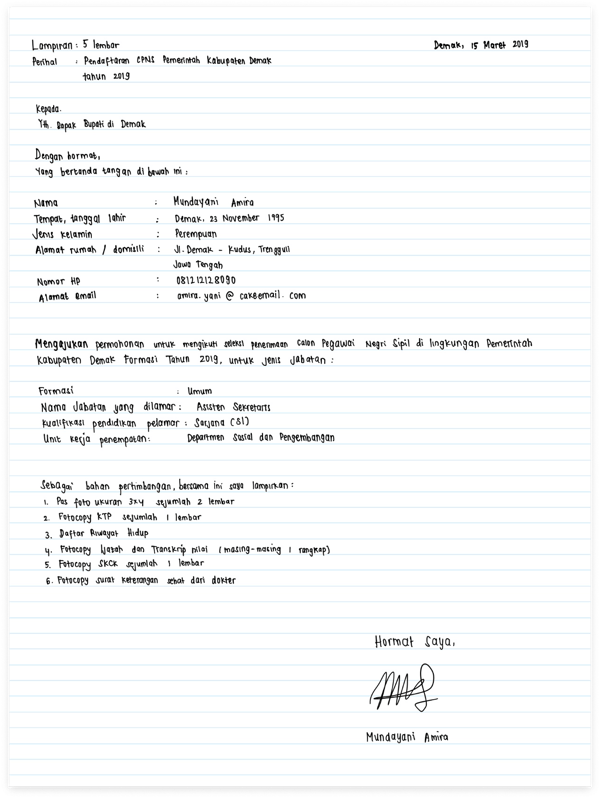 Lampiran : 5 lembar
Demak, 15 Maret 2019
Perihal : Pendaftaran CPNS Pemerintah Kabupaten Demak
tahun 2019
Kepada.
Yth. Bapak Bupati di Demak
Dengan hormat,
Yang bertanda tangan di bawah ini :
Nama : Mundayani Amira
Tempat, tanggal lahir : Demak, 23 November 1995
Jenis kelamin : Perempuan
Alamat rumah / domisili : Jl. Demak - Kudus, Trengguli
Jawa Tengah
Nomor HP : 081212128090
Alamat email : amira.yani @ cakeemail.com
Mengajukan permohonan untuk mengikuti seleksi penerimaan Calon Pegawai Negri Sipil di lingkungan Pemerintah
Kabupaten Demak Formasi Tahun 2019, untuk jenis jabatan :
Formasi : Umum
Nama Jabatan yang dilamar : Asisten Sekretaris
Kualifikasi pendidikan pelamar : Sarjana (S1)
Unit kerja penempatan: Departmen Sosial dan Pengembangan
Sebagai bahan pertimbangan, bersama ini saya lampirkan :
1. Pas foto ukuran 3x4 sejumlah 2 lembar
2. Fotocopy KTP sejumlah 1 lembar
3. Daftar Riwayat Hidup
4. Fotocopy Ijazah dan Transkrip nilai (masing-masing 1 rangkap)
5. Fotocopy SKCK sejumlah 1 lembar
6. Fotocopy surat keterangan sehat dari dokter
Hormat Saya,
Mundayani Amira